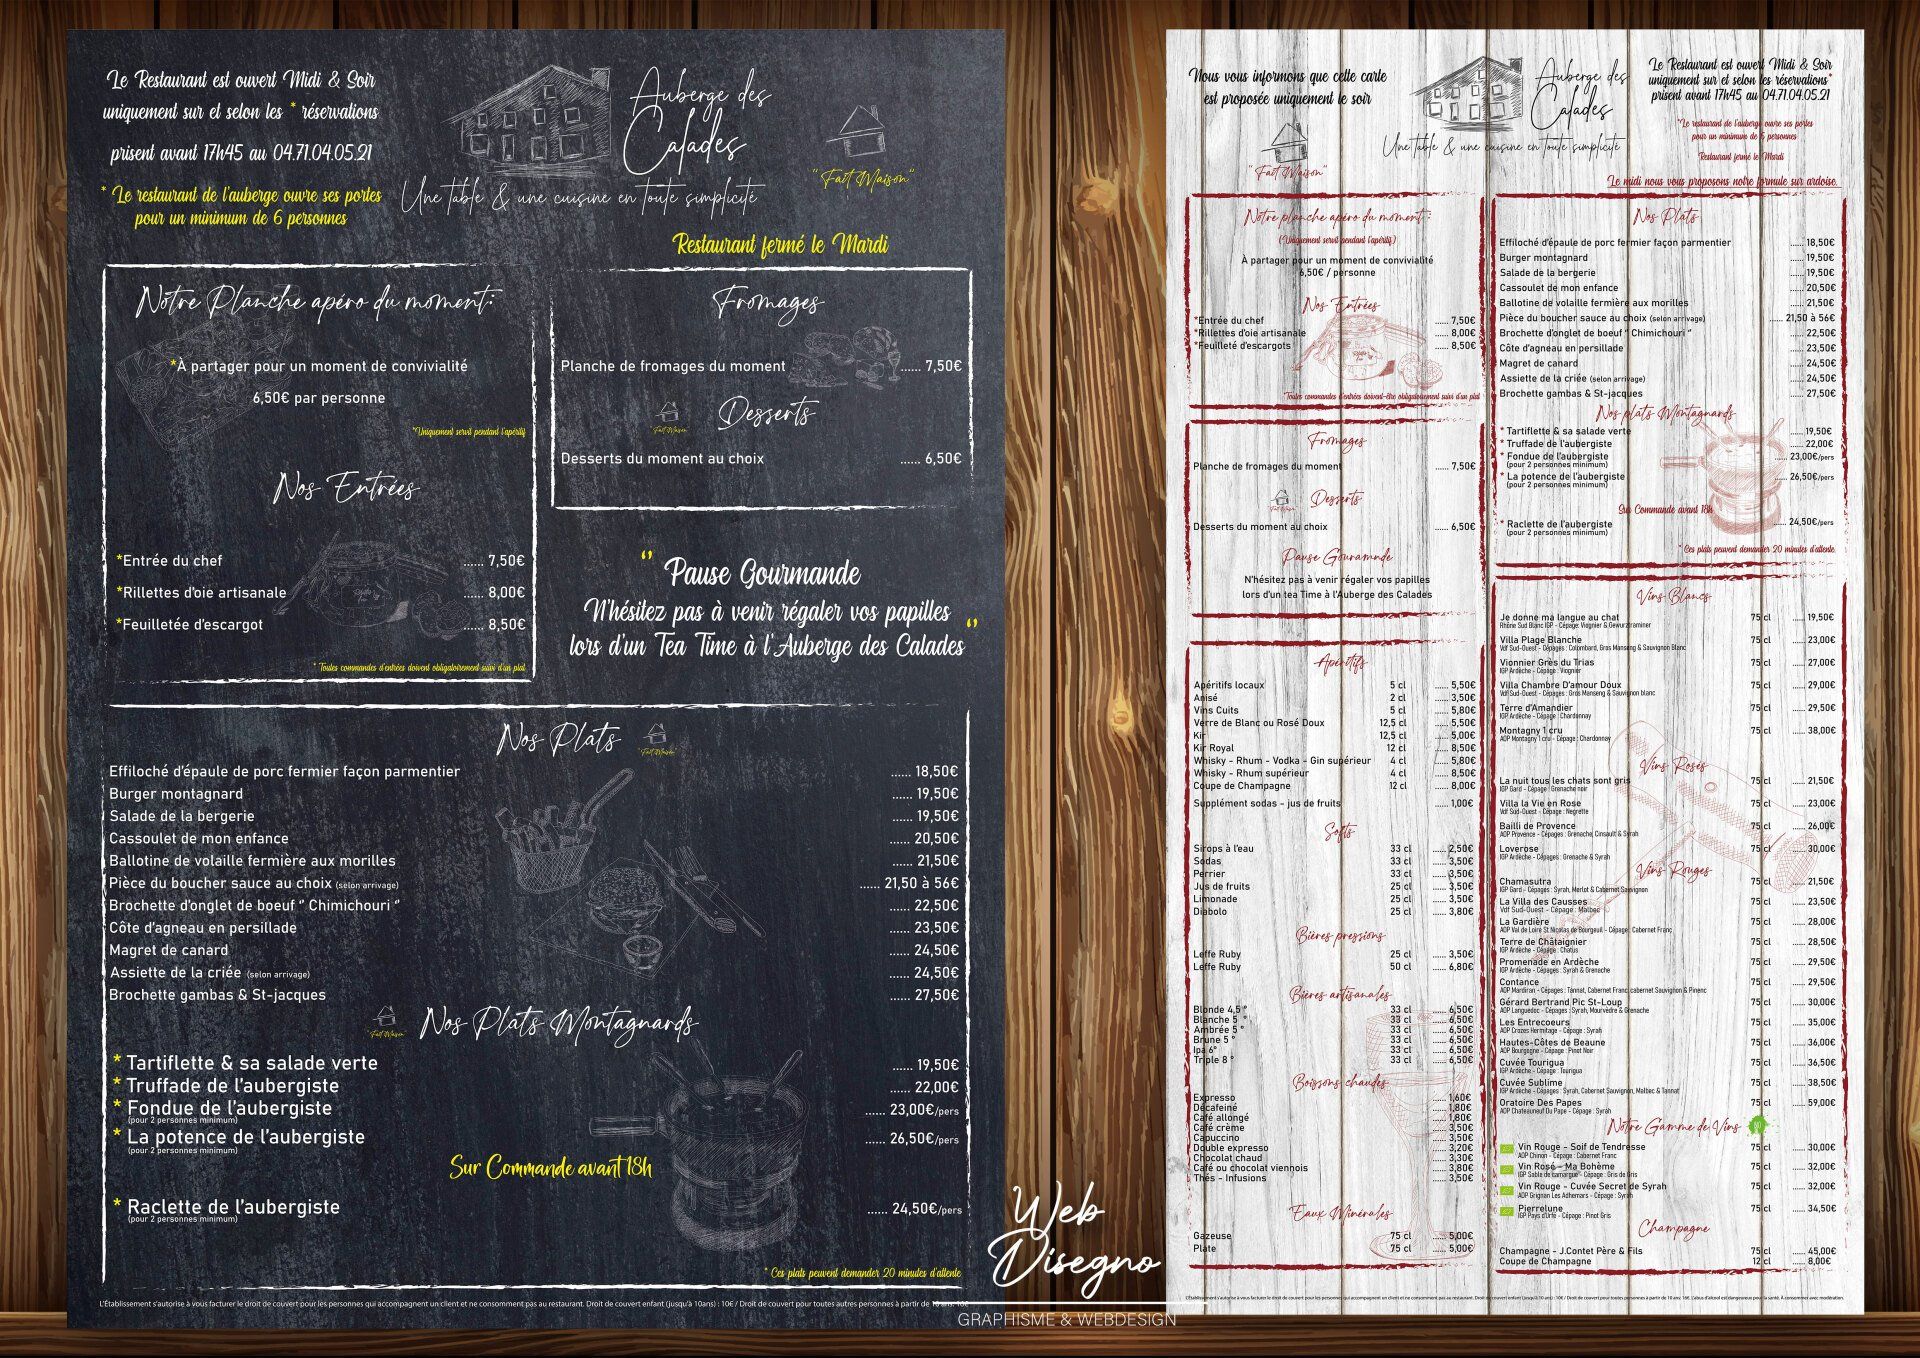 Le Restaurant est ouvert Midi & Soir
uniquement sur et selon les * réservations
prisent avant 17h45 au 04.71.04.05.21
* Le restaurant de l'auberge ouvre ses portes
pour un minimum de 6 personnes
Auberge des
Calades
Une table & une cuisine en toute simplicité
"Fait Maison"
Restaurant fermé le Mardi
Notre Planche apéro du moment:
*À partager pour un moment de convivialité
6,50€ par personne
*Uniquement servit pendant l'apéritif
Nos Entrées
*Entrée du chef ...... 7,50€
*Rillettes d'oie artisanale ...... 8,00€
*Feuilletée d'escargot ...... 8,50€
* Toutes commandes d'entrées doivent obligatoirement suivi d'un plat
Fromages
Planche de fromages du moment ...... 7,50€
"Fait Maison"
Desserts
Desserts du moment au choix ...... 6,50€
" Pause Gourmande
N'hésitez pas à venir régaler vos papilles
lors d'un Tea Time à l'Auberge des Calades "
Nos Plats
"Fait Maison"
Effiloché d'épaule de porc fermier façon parmentier ...... 18,50€
Burger montagnard ...... 19,50€
Salade de la bergerie ...... 19,50€
Cassoulet de mon enfance ...... 20,50€
Ballotine de volaille fermière aux morilles ...... 21,50€
Pièce du boucher sauce au choix (selon arrivage) ...... 21,50 à 56€
Brochette d'onglet de boeuf " Chimichouri " ...... 22,50€
Côte d'agneau en persillade ...... 23,50€
Magret de canard ...... 24,50€
Assiette de la criée (selon arrivage) ...... 24,50€
Brochette gambas & St-jacques ...... 27,50€
"Fait Maison"
Nos Plats Montagnards
* Tartiflette & sa salade verte ...... 19,50€
* Truffade de l'aubergiste ...... 22,00€
* Fondue de l'aubergiste ...... 23,00€/pers
(pour 2 personnes minimum)
* La potence de l'aubergiste ...... 26,50€/pers
(pour 2 personnes minimum)
Sur Commande avant 18h
* Raclette de l'aubergiste ...... 24,50€/pers
(pour 2 personnes minimum)
* Ces plats peuvent demander 20 minutes d'attente
L'Établissement s'autorise à vous facturer le droit de couvert pour les personnes qui accompagnent un client et ne consomment pas au restaurant. Droit de couvert enfant (jusqu'à 10ans) : 10€ / Droit de couvert pour toutes autres personnes à partir de 10 ans: 16€
Web
Disegno
GRAPHISME & WEBDESIGN
Nous vous informons que cette carte
est proposée uniquement le soir
"Fait Maison"
Auberge des
Calades
Une table & une cuisine en toute simplicité
Le Restaurant est ouvert Midi & Soir
uniquement sur et selon les réservations*
prisent avant 17h45 au 04.71.04.05.21
*Le restaurant de l'auberge ouvre ses portes
pour un minimum de 6 personnes
Restaurant fermé le Mardi
Le midi nous vous proposons notre formule sur ardoise.
Notre planche apéro du moment :
(Uniquement servit pendant l'apéritif)
À partager pour un moment de convivialité
6,50€ / personne
Nos Entrées
*Entrée du chef ...... 7,50€
*Rillettes d'oie artisanale ...... 8,00€
*Feuilleté d'escargots ...... 8,50€
*Toutes commandes d'entrées doivent-être obligatoirement suivi d'un plat
Fromages
Planche de fromages du moment ...... 7,50€
"Fait Maison"
Desserts
Desserts du moment au choix ...... 6,50€
Pause Gouramnde
N'hésitez pas à venir régaler vos papilles
lors d'un tea Time à l'Auberge des Calades
Apéritifs
Apéritifs locaux 5 cl ...... 5,50€
Anisé 2 cl ...... 3,50€
Vins Cuits 5 cl ...... 5,80€
Verre de Blanc ou Rosé Doux 12,5 cl ...... 5,50€
Kir 12,5 cl ...... 5,00€
Kir Royal 12 cl ...... 8,50€
Whisky - Rhum - Vodka - Gin supérieur 4 cl ...... 5,80€
Whisky - Rhum supérieur 4 cl ...... 8,50€
Coupe de Champagne 12 cl ...... 8,00€
Supplément sodas - jus de fruits ...... 1,00€
Softs
Sirops à l'eau 33 cl ...... 2,50€
Sodas 33 cl ...... 3,50€
Perrier 33 cl ...... 3,50€
Jus de fruits 25 cl ...... 3,50€
Limonade 25 cl ...... 3,50€
Diabolo 25 cl ...... 3,80€
Bières pressions
Leffe Ruby 25 cl ...... 3,50€
Leffe Ruby 50 cl ...... 6,80€
Bières artisanales
Blonde 4,5 ° 33 cl ...... 6,50€
Blanche 5 ° 33 cl ...... 6,50€
Ambrée 5 ° 33 cl ...... 6,50€
Brune 5 ° 33 cl ...... 6,50€
Ipa 6° 33 cl ...... 6,50€
Triple 8 ° 33 cl ...... 6,50€
Boissons chaudes
Expresso ...... 1,60€
Décafeiné ...... 1,80€
Café allongé ...... 1,80€
Café crème ...... 3,50€
Capuccino ...... 3,50€
Double expresso ...... 3,20€
Chocolat chaud ...... 3,30€
Café ou chocolat viennois ...... 3,80€
Thés - Infusions ...... 3,50€
Eaux Minérales
Gazeuse 75 cl ...... 5,00€
Plate 75 cl ...... 5,00€
Nos Plats
Effiloché d'épaule de porc fermier façon parmentier ...... 18,50€
Burger montagnard ...... 19,50€
Salade de la bergerie ...... 19,50€
Cassoulet de mon enfance ...... 20,50€
Ballotine de volaille fermière aux morilles ...... 21,50€
Pièce du boucher sauce au choix (selon arrivage) ...... 21,50 à 56€
Brochette d'onglet de boeuf " Chimichouri " ...... 22,50€
Côte d'agneau en persillade ...... 23,50€
Magret de canard ...... 24,50€
Assiette de la criée (selon arrivage) ...... 24,50€
Brochette gambas & St-jacques ...... 27,50€
Nos plats Montagnards
* Tartiflette & sa salade verte ...... 19,50€
* Truffade de l'aubergiste ...... 22,00€
* Fondue de l'aubergiste ...... 23,00€/pers
(pour 2 personnes minimum)
* La potence de l'aubergiste ...... 26,50€/pers
(pour 2 personnes minimum)
Sur Commande avant 18h
* Raclette de l'aubergiste ...... 24,50€/pers
(pour 2 personnes minimum)
* Ces plats peuvent demander 20 minutes d'attente
Vins Blancs
Je donne ma langue au chat 75 cl ...... 19,50€
Rhône Sud Blanc IGP - Cépage: Viognier & Gewurztraminer
Villa Plage Blanche 75 cl ...... 23,00€
Vdf Sud-Ouest - Cépages : Colombard, Gros Manseng & Sauvignon Blanc
Vionnier Grès du Trias 75 cl ...... 27,00€
IGP Ardèche - Cépage : Viognier
Villa Chambre D'amour Doux 75 cl ...... 29,00€
Vdf Sud-Ouest - Cépages : Gros Manseng & Sauvignon blanc
Terre d'Amandier 75 cl ...... 29,50€
IGP Ardèche - Cépage : Chardonnay
Montagny 1 cru 75 cl ...... 38,00€
AOP Montagny 1 cru - Cépage : Chardonnay
Vins Rosés
La nuit tous les chats sont gris 75 cl ...... 21,50€
IGP Gard - Cépage : Grenache noir
Villa la Vie en Rose 75 cl ...... 23,00€
Vdf Sud-Ouest - Cépage : Negrette
Bailli de Provence 75 cl ...... 26,00€
AOP Provence - Cépages : Grenache, Cinsault & Syrah
Loverose 75 cl ...... 30,00€
IGP Ardèche - Cépages : Grenache & Syrah
Vins Rouges
Chamasutra 75 cl ...... 21,50€
IGP Gard - Cépages : Syrah, Merlot & Cabernet Sauvignon
La Villa des Causses 75 cl ...... 23,50€
Vdf Sud-Ouest - Cépage : Malbec
La Gardière 75 cl ...... 28,00€
AOP Val de Loire St Nicolas de Bourgeuil - Cépage : Cabernet Franc
Terre de Châtaignier 75 cl ...... 28,50€
IGP Ardèche - Cépage : Chatus
Promenade en Ardèche 75 cl ...... 29,50€
IGP Ardèche - Cépages : Syrah & Grenache
Contance 75 cl ...... 29,50€
AOP Mardiran - Cépages : Tannat, Cabernet Franc, cabernet Sauvignon & Pinenc
Gérard Bertrand Pic St-Loup 75 cl ...... 30,00€
AOP Languedoc - Cépages : Syrah, Mourvèdre & Grenache
Les Entrecoeurs 75 cl ...... 35,00€
AOP Crozes Hermitage - Cépage : Syrah
Hautes-Côtes de Beaune 75 cl ...... 36,00€
AOP Bourgogne - Cépage : Pinot Noir
Cuvée Tourigua 75 cl ...... 36,50€
IGP Ardèche - Cépage : Tourigua
Cuvée Sublime 75 cl ...... 38,50€
IGP Ardèche - Cépages : Syrah, Cabernet Sauvignon, Malbec & Tannat
Oratoire Des Papes 75 cl ...... 59,00€
AOP Chateauneuf Du Pape - Cépage : Syrah
Notre Gamme de Vins
Vin Rouge - Soif de Tendresse 75 cl ...... 30,00€
AOP Chinon - Cépage : Cabernet Franc
Vin Rosé - Ma Bohème 75 cl ...... 32,00€
IGP Sable de camargue - Cépage : Gris de Gris
Vin Rouge - Cuvée Secret de Syrah 75 cl ...... 32,00€
AOP Grignan Les Adhemars - Cépage : Syrah
Pierrelune 75 cl ...... 34,50€
IGP Pays d'Urfé - Cépage : Pinot Gris
Champagne
Champagne - J.Contet Père & Fils 75 cl ...... 45,00€
Coupe de Champagne 12 cl ...... 8,00€
L'Établissement s'autorise à vous facturer le droit de couvert pour les personnes qui accompagnent un client et ne consomment pas au restaurant. Droit de couvert enfant (jusqu'à 10ans) : 10€ / Droit de couvert pour toutes autres personnes à partir de 10 ans: 16€. L'abus d'alcool est dangereux pour la santé. À consommer avec modération.